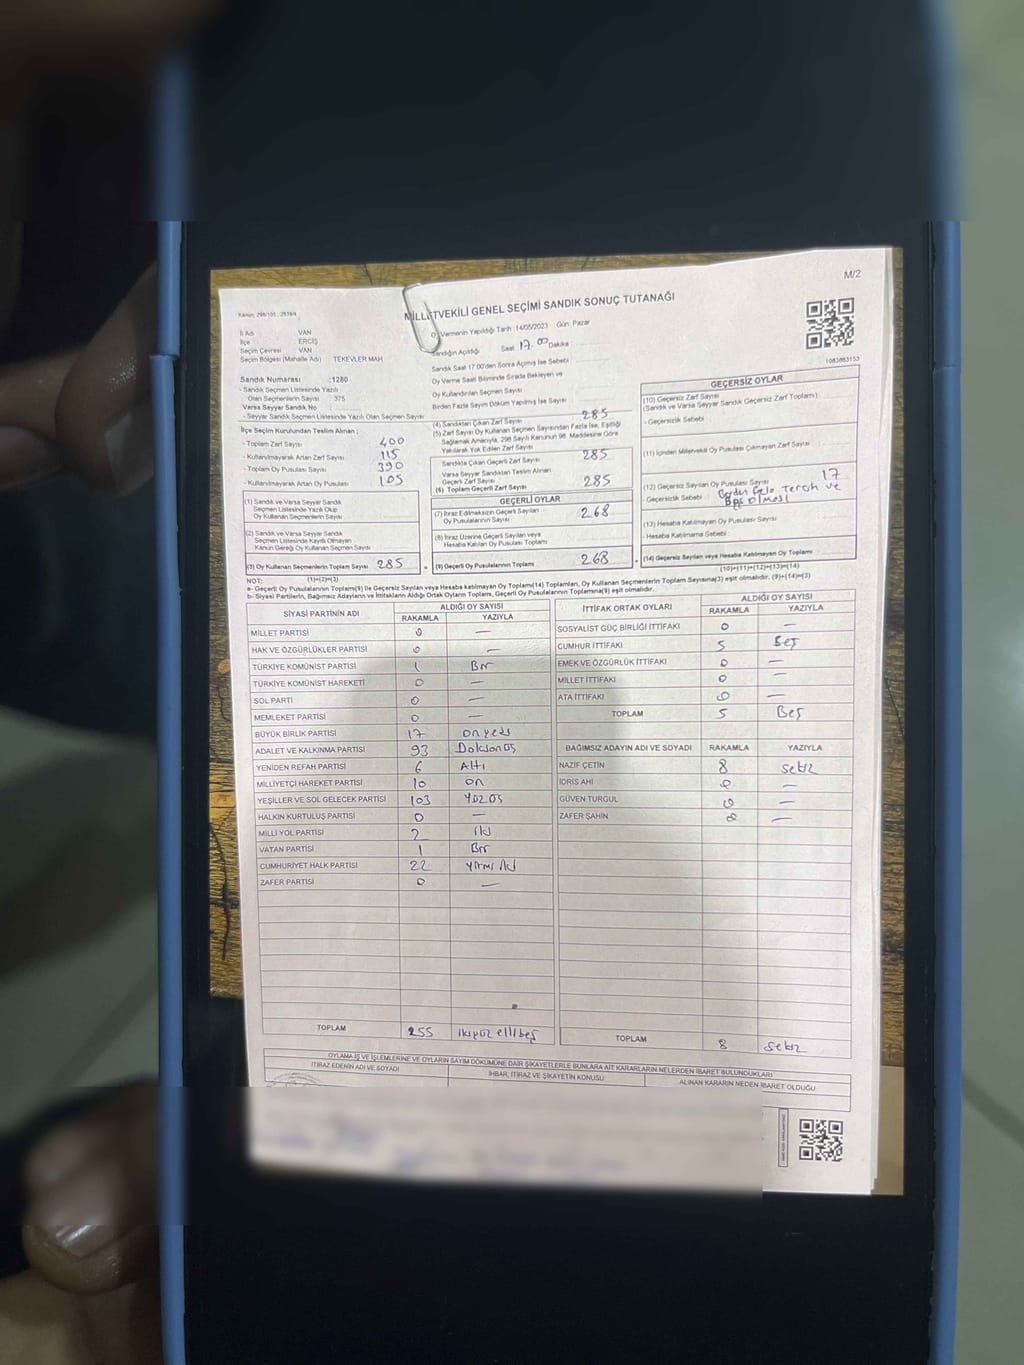 M/2
Kanun: 298/105 , 2839/4
MİLLETVEKİLİ GENEL SEÇİMİ SANDIK SONUÇ TUTANAĞI
Oy Vermenin Yapıldığı Tarih :14/05/2023 Gün: Pazar
İl Adı VAN
İlçe ERCİŞ
Seçim Çevresi VAN
Seçim Bölgesi (Mahalle Adı) : TEKEVLER MAH
Sandığın Açıldığı Saat 17.00 Dakika
Sandık Saat 17:00'den Sonra Açılmış İse Sebebi
Oy Verme Saati Bitiminde Sırada Bekleyen ve
Oy Kullandırılan Seçmen Sayısı
Birden Fazla Sayım Döküm Yapılmış İse Sayısı
1083883153
Sandık Numarası :1280
- Sandık Seçmen Listesinde Yazılı
Olan Seçmenlerin Sayısı : 375
Varsa Seyyar Sandık No
- Seyyar Sandık Seçmen Listesinde Yazılı Olan Seçmen Sayısı
İlçe Seçim Kurulundan Teslim Alınan ;
- Toplam Zarf Sayısı 400
- Kullanılmayarak Artan Zarf Sayısı 115
- Toplam Oy Pusulası Sayısı 390
- Kullanılmayarak Artan Oy Pusulası 105
(1) Sandık ve Varsa Seyyar Sandık
Seçmen Listesinde Yazılı Olup
Oy Kullanan Seçmenlerin Sayısı
(2) Sandık ve Varsa Seyyar Sandık
Seçmen Listesinde Kayıtlı Olmayan
Kanun Gereği Oy Kullanan Seçmen Sayısı
(3) Oy Kullanan Seçmenlerin Toplam Sayısı 285
(1)+(2)=(3)
(4) Sandıktan Çıkan Zarf Sayısı 285
(5) Zarf Sayısı Oy Kullanan Seçmen Sayısından Fazla İse, Eşitliği
Sağlamak Amacıyla, 298 Sayılı Kanunun 98. Maddesine Göre
Yakılarak Yok Edilen Zarf Sayısı
Sandıkta Çıkan Geçerli Zarf Sayısı 285
Varsa Seyyar Sandıktan Teslim Alınan
Geçerli Zarf Sayısı
(6) Toplam Geçerli Zarf Sayısı 285
GEÇERLİ OYLAR
(7) İtiraz Edilmeksizin Geçerli Sayılan
Oy Pusulalarının Sayısı 268
(8) İtiraz Üzerine Geçerli Sayılan veya
Hesaba Katılan Oy Pusulası Toplamı
= (9) Geçerli Oy Pusulalarının Toplamı 268
GEÇERSİZ OYLAR
(10) Geçersiz Zarf Sayısı
(Sandık ve Varsa Seyyar Sandık Geçersiz Zarf Toplamı)
- Geçersizlik Sebebi
(11) İçinden Milletvekili Oy Pusulası Çıkmayan Zarf Sayısı
(12) Geçersiz Sayılan Oy Pusulası Sayısı 17
- Geçersizlik Sebebi Birden Fazla Tercih ve
Boş Olması
(13) Hesaba Katılmayan Oy Pusulası Sayısı
- Hesaba Katılmama Sebebi
+ (14) Geçersiz Sayılan veya Hesaba Katılmayan Oy Toplamı
(10)+(11)+(12)+(13)=(14)
NOT:
a- Geçerli Oy Pusulalarının Toplamı(9) ile Geçersiz Sayılan veya Hesaba katılmayan Oy Toplamı(14) Toplamları, Oy Kullanan Seçmenlerin Toplam Sayısına(3) eşit olmalıdır. (9)+(14)=(3)
b- Siyasi Partilerin, Bağımsız Adayların ve İttifakların Aldığı Ortak Oyların Toplamı, Geçerli Oy Pusulalarının Toplamına(9) eşit olmalıdır.
SİYASİ PARTİNİN ADI ALDIĞI OY SAYISI
RAKAMLA YAZIYLA
MİLLET PARTİSİ 0 —
HAK VE ÖZGÜRLÜKLER PARTİSİ 0 —
TÜRKİYE KOMÜNİST PARTİSİ 1 Bir
TÜRKİYE KOMÜNİST HAREKETİ 0 —
SOL PARTİ 0 —
MEMLEKET PARTİSİ 0 —
BÜYÜK BİRLİK PARTİSİ 17 on yedi
ADALET VE KALKINMA PARTİSİ 93
YENİDEN REFAH PARTİSİ 6 Altı
MİLLİYETÇİ HAREKET PARTİSİ 10 on
YEŞİLLER VE SOL GELECEK PARTİSİ 103
HALKIN KURTULUŞ PARTİSİ 0 —
MİLLİ YOL PARTİSİ 2 iki
VATAN PARTİSİ 1 Bir
CUMHURİYET HALK PARTİSİ 22 yirmi iki
ZAFER PARTİSİ 0 —
TOPLAM 255 ikiyüz ellibeş
İTTİFAK ORTAK OYLARI ALDIĞI OY SAYISI
RAKAMLA YAZIYLA
SOSYALİST GÜÇ BİRLİĞİ İTTİFAKI 0 —
CUMHUR İTTİFAKI 5 Beş
EMEK VE ÖZGÜRLÜK İTTİFAKI 0 —
MİLLET İTTİFAKI 0 —
ATA İTTİFAKI 0 —
TOPLAM 5 Beş
BAĞIMSIZ ADAYIN ADI VE SOYADI RAKAMLA YAZIYLA
NAZİF ÇETİN 8 sekiz
İDRİS AHİ 0 —
GÜVEN TURGUL 0 —
ZAFER ŞAHİN 0 —
TOPLAM 8 sekiz
OYLAMA İŞ VE İŞLEMLERİNE VE OYLARIN SAYIM DÖKÜMÜNE DAİR ŞİKAYETLERLE BUNLARA AİT KARARLARIN NELERDEN İBARET BULUNDUKLARI
İTİRAZ EDENİN ADI VE SOYADI İHBAR, İTİRAZ VE ŞİKAYETİN KONUSU ALINAN KARARIN NEDEN İBARET OLDUĞU